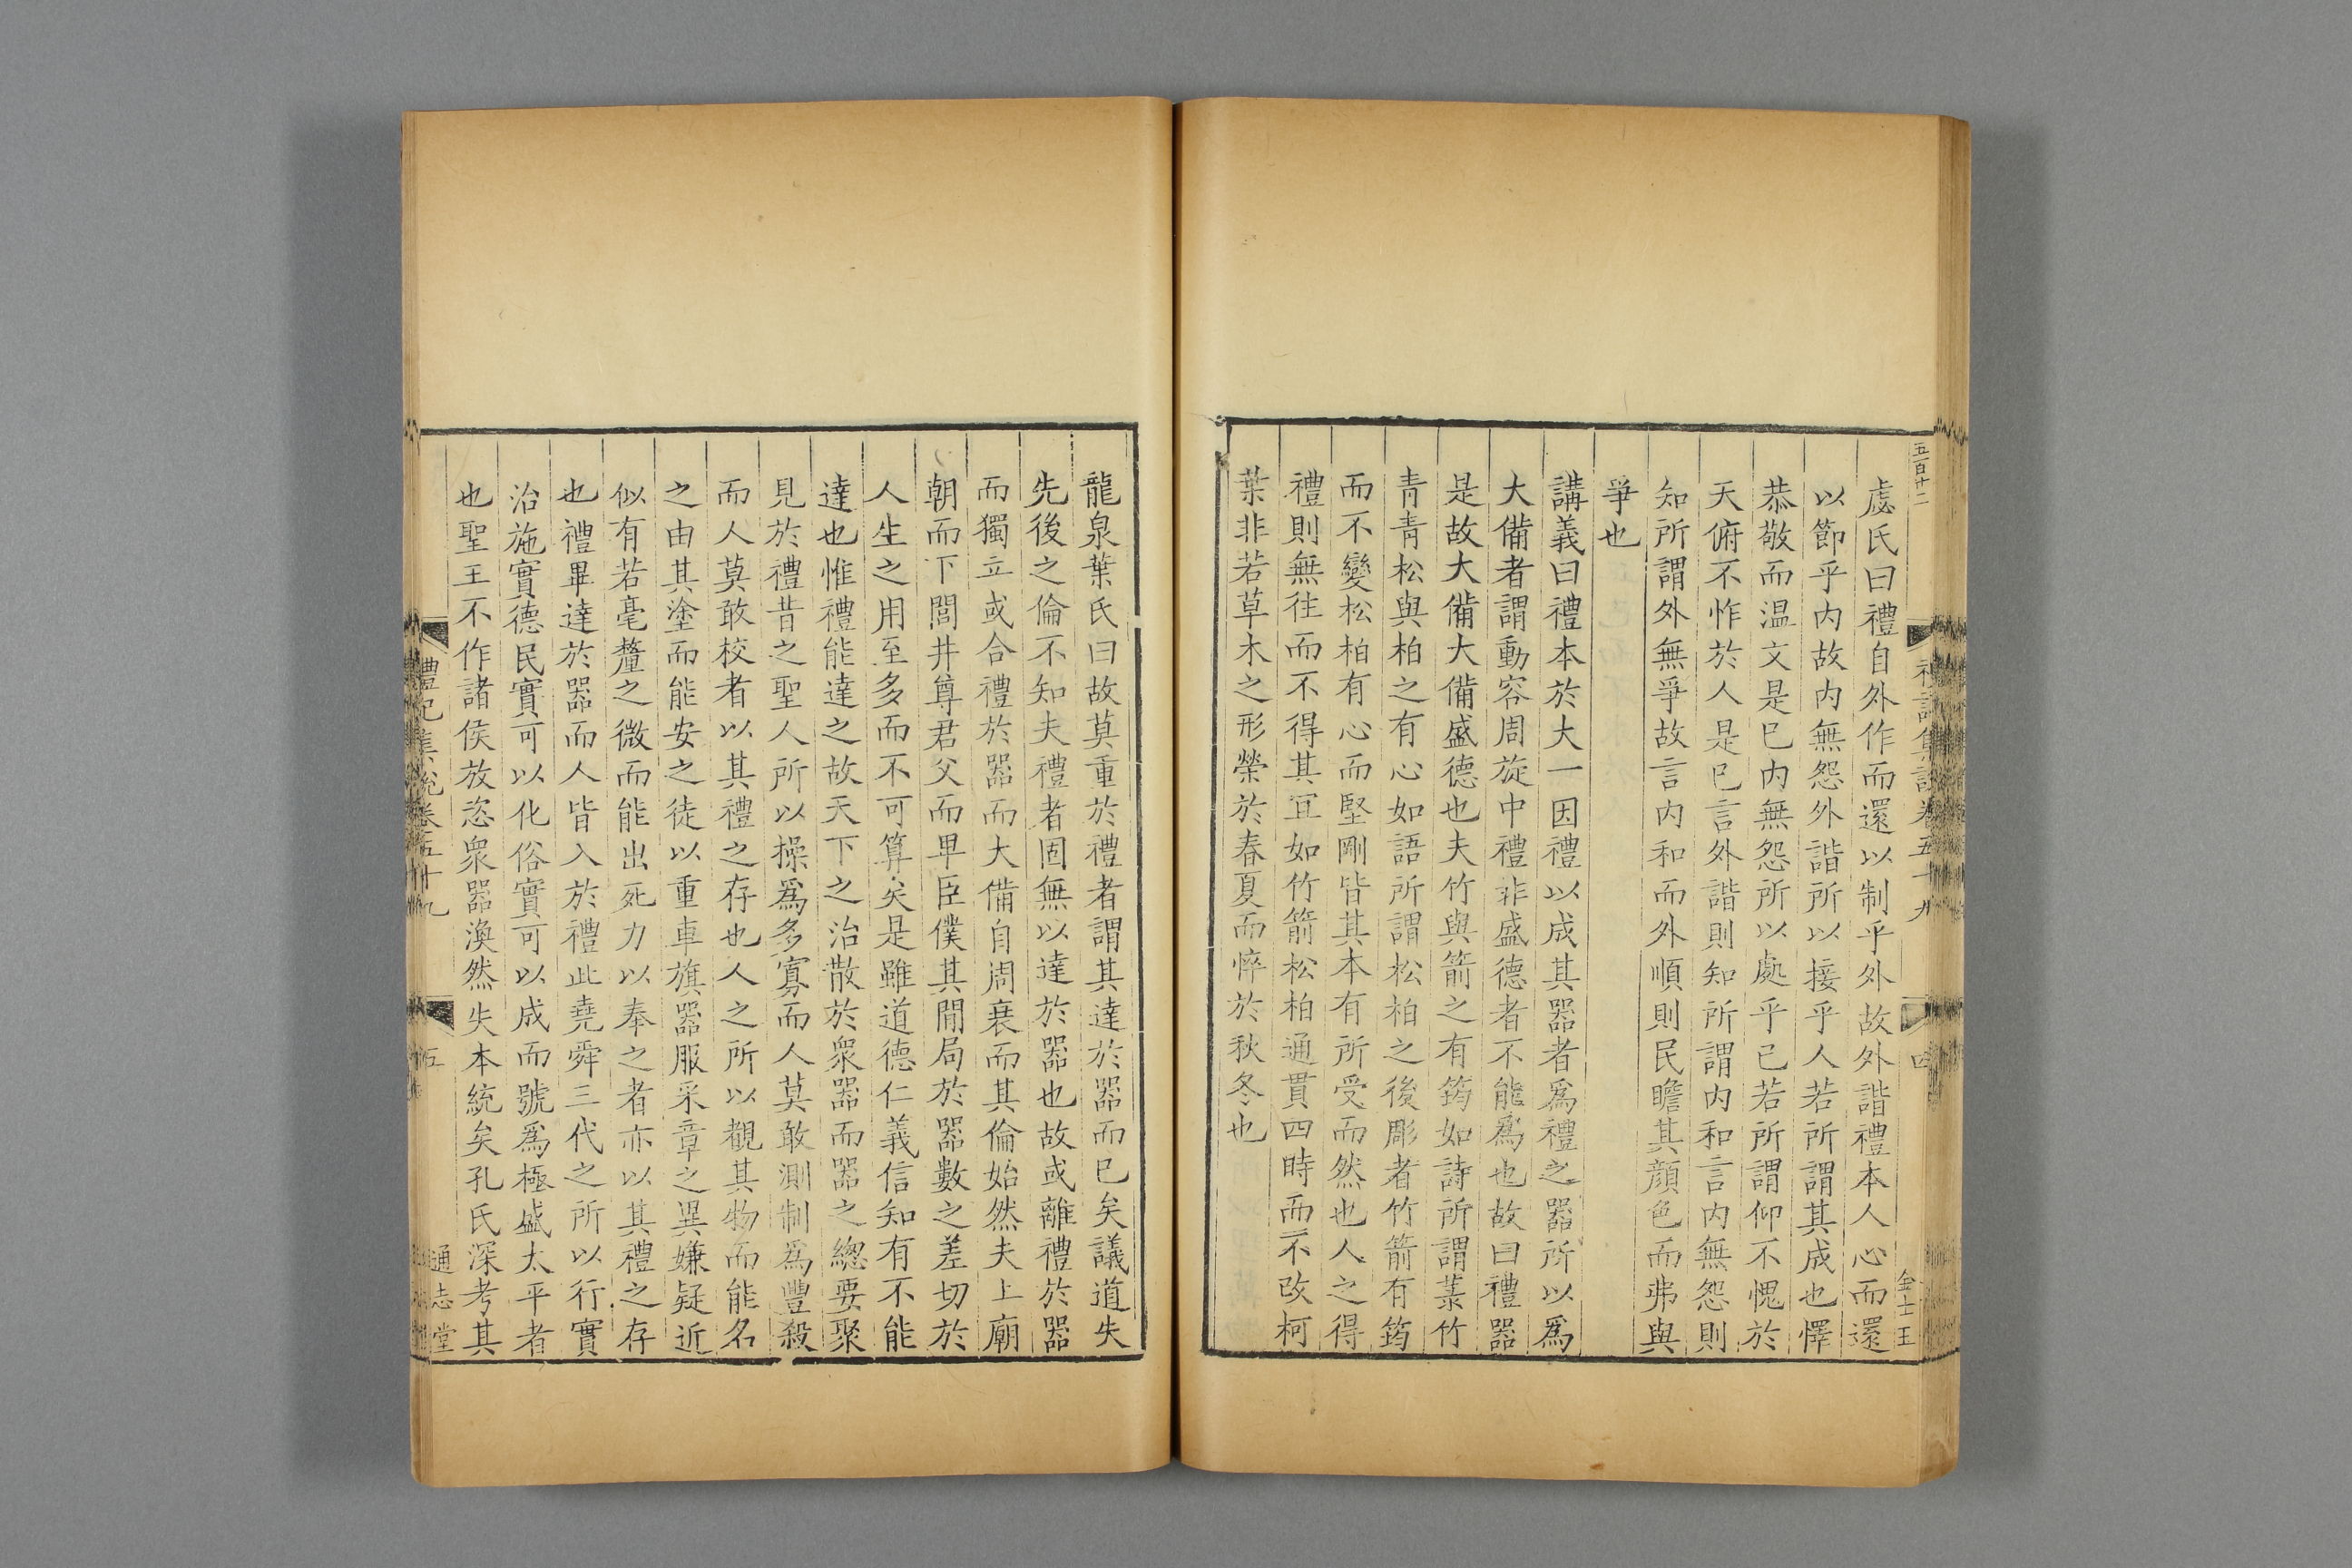 五百十二
禮記集說卷五十九
四
金士玉
虙氏曰禮自外作而還以制乎外故外諧禮本人心而還
以節乎内故内無怨外諧所以接乎人若所謂其成也懌
恭敬而温文是已内無怨所以處乎已若所謂仰不愧於
天俯不怍於人是已言外諧則知所謂内和言内無怨則
知所謂外無爭故言内和而外順則民瞻其顔色而弗與
爭也
講義曰禮本於大一因禮以成其器者爲禮之器所以爲
大備者謂動容周旋中禮非盛德者不能爲也故曰禮器
是故大備大備盛德也夫竹與箭之有筠如詩所謂菉竹
青青松與柏之有心如語所謂松柏之後彫者竹箭有筠
而不變松柏有心而堅剛皆其本有所受而然也人之得
禮則無往而不得其宜如竹箭松柏通貫四時而不改柯
葉非若草木之形榮於春夏而悴於秋冬也
龍泉葉氏曰故莫重於禮者謂其達於器而已矣議道失
先後之倫不知夫禮者固無以達於器也故或離禮於器
而獨立或合禮於器而大備自周衰而其倫始然夫上廟
朝而下閭井尊君父而卑臣僕其閒局於器數之差切於
人生之用至多而不可算矣是雖道德仁義信知有不能
達也惟禮能達之故天下之治散於衆器而器之緫要聚
見於禮昔之聖人所以操爲多寡而人莫敢測制爲豐殺
而人莫敢校者以其禮之存也人之所以觀其物而能名
之由其塗而能安之徒以重車旗器服采章之異嫌疑近
似有若毫釐之微而能出死力以奉之者亦以其禮之存
也禮畢達於器而人皆入於禮此堯舜三代之所以行實
治施實德民實可以化俗實可以成而號爲極盛太平者
也聖王不作諸侯放恣衆器渙然失本統矣孔氏深考其
禮記集說卷五十九
五
通志堂